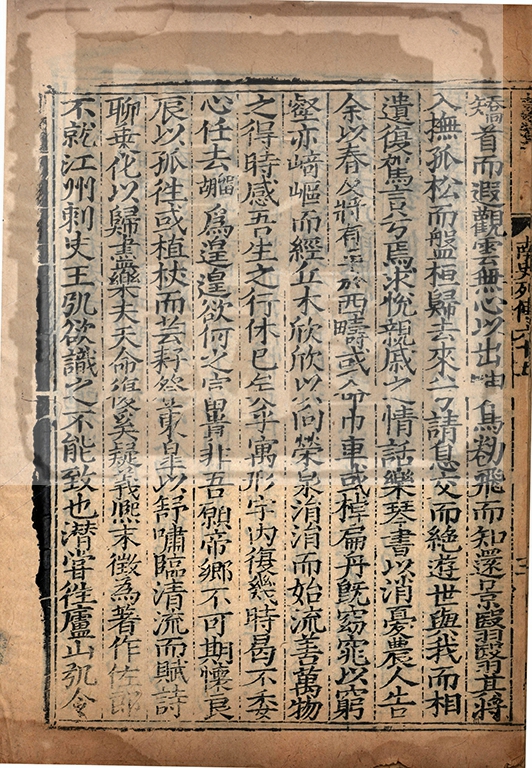 矯首而遐觀雲無心以出岫鳥勌飛而知還景翳翳其將
入撫孤松而盤桓歸去來兮請息交而絶遊世與我而相
遺復駕言兮焉求悅親戚之情話樂琴書以消憂農人告
余以春及將有事於西疇或命巾車或棹扁舟旣窈窕以窮
壑亦崎嶇而經丘木欣欣以向榮泉涓涓而始流善萬物
之得時感吾生之行休已矣乎寓形宇內復幾時曷不委
心任去留胡爲遑遑欲何之富貴非吾願帝鄉不可期懷良
辰以孤往或植杖而芸耔登東皐以舒嘯臨清流而賦詩
聊乗化以歸盡樂夫天命復奚疑義熙末徵為著作佐郎
不就江州刺史王弘欲識之不能致也潛嘗往廬山弘令